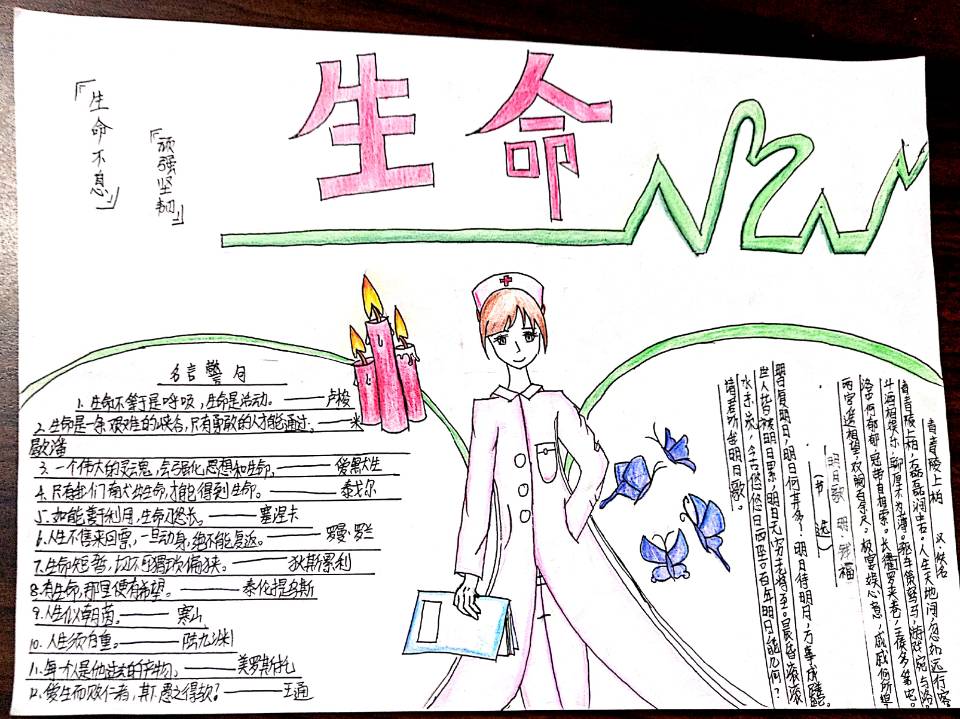 生命
「生命不息」
「顽强坚韧」
名言警句
1.生命不等于是呼吸,生命是活动。——卢梭
2.生命是一条艰难的峡谷,只有勇敢的人才能通过。——米
歇潘
3.一个伟大的灵魂,会强化思想和生命。——爱默生
4.只有我们有 生命,才能得到生命。——泰戈尔
5.如能善于利用,生命乃悠长。——塞涅卡
6.人生不售来回票,一旦动身,绝不能复返。——罗曼·罗兰
7.生命短暂, ——狄斯累利
8.有生命,那里便有希望。——泰伦提乌斯
9.人生似朝菌。——寒山
10.人生须自重。——陆九渊
11.每个人是他 的产物。——美罗斯
12.爱生而败仁者,其 之得欤?——王通
青青陵上柏 汉·佚名
青青陵上柏,磊磊涧 。人生天地间,忽如远行客。
斗酒相娱乐,聊厚不为薄。驱车策驽马,游戏宛与洛。
洛 何郁郁,冠带自相索。长衢罗夹巷,王侯多第宅。
两宫遥相望,双阙百 尺。极宴娱心意,戚戚何所
明日歌 明·钱福
(节选)
明日复明日,明日何其多? 明日待明日,万事成蹉
世人 被明日累,明日无穷老将至。晨昏滚滚
水 东 ,今古悠悠日 西 。百年明日能几何?
请君 听 明日歌。